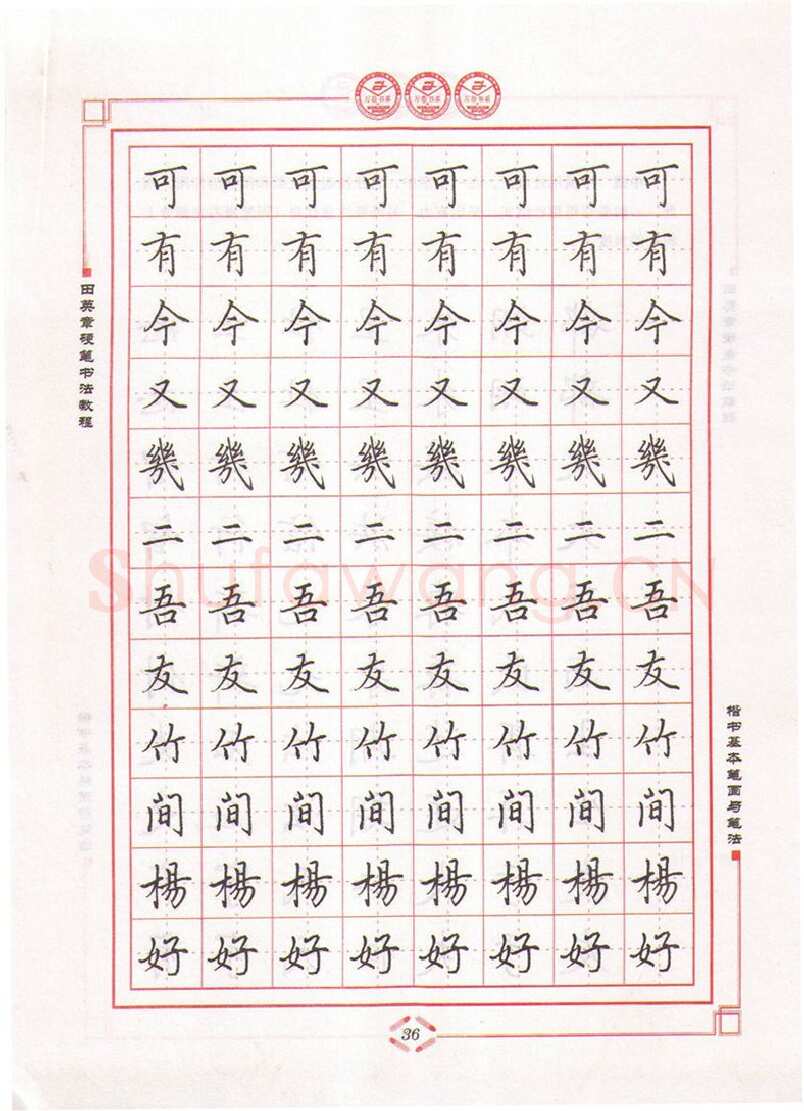 万卷书系 万卷书系 万卷书系
可可可可可可可可
有有有有有有有有
今今今今今今今今
又又又又又又又又
幾幾幾幾幾幾幾幾
二二二二二二二二
吾吾吾吾吾吾吾吾
友友友友友友友友
竹竹竹竹竹竹竹竹
间间间间间间间间
楊楊楊楊楊楊楊楊
好好好好好好好好
田英章硬笔书法教程
楷书基本笔画与笔法
Shufawang.CN
36